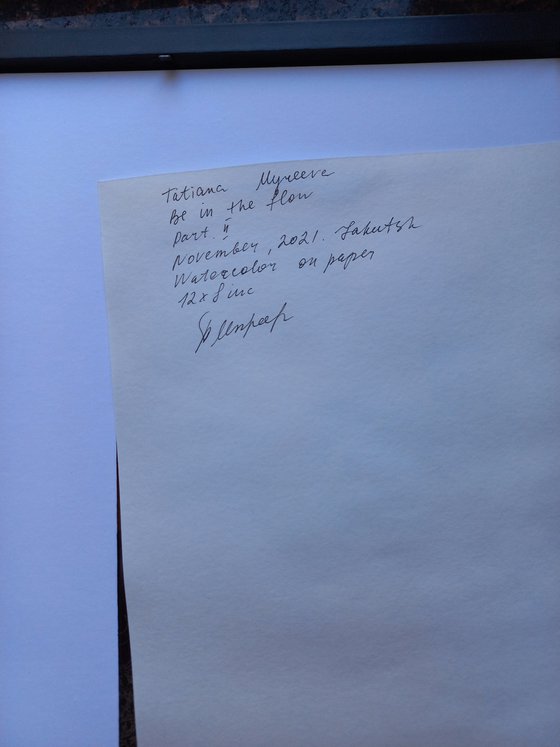 Tatiana Myreeva
Be in the flow
Part. II
November, 2021. Jakutsk
Watercolor on paper
12x8 inc